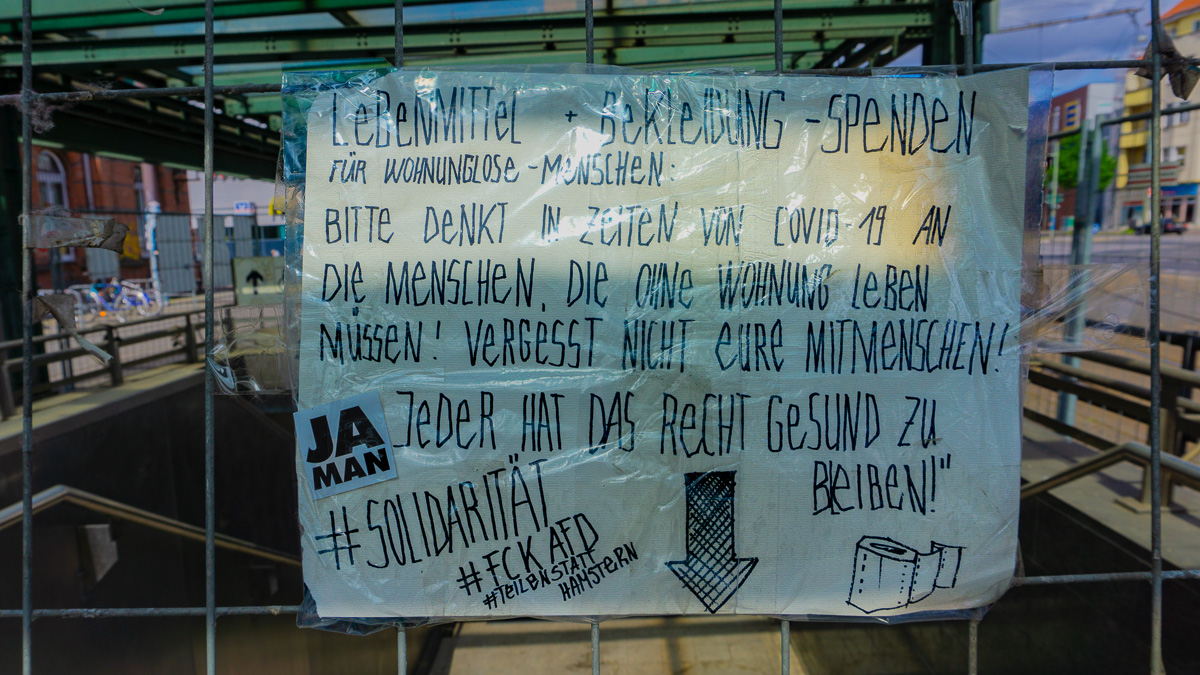 LEBENMITTEL + BEKLEIDUNG - SPENDEN
FÜR WOHNUNGLOSE - MENSCHEN:
BITTE DENKT IN ZEITEN VON COVID-19 AN
DIE MENSCHEN, DIE OHNE WOHNUNG LEBEN
MÜSSEN! VERGESST NICHT EURE MITMENSCHEN!
JEDER HAT DAS RECHT GESUND ZU
BLEIBEN!"
JA
MAN
#SOLIDARITÄT
#FCK AFD
#TEILENSTATT
HAMSTERN